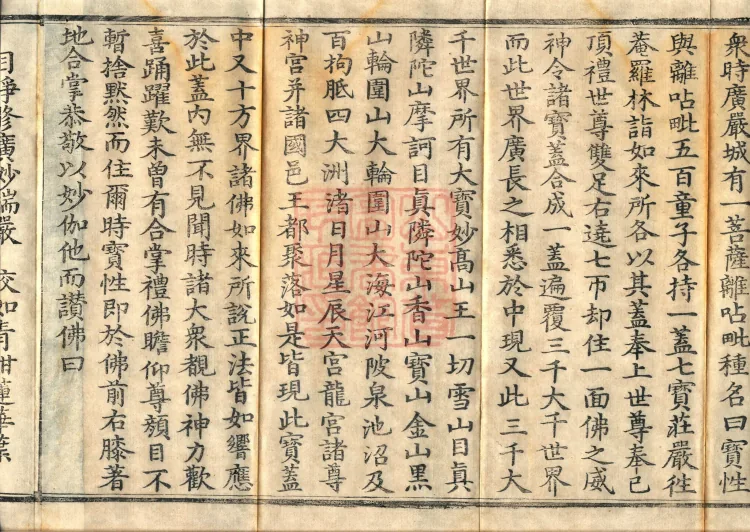 衆時廣嚴城有一菩薩離呫毗種名曰寶性
與離呫毗五百童子各持一蓋七寶莊嚴徃
菴羅林詣如來所各以其蓋奉上世尊奉已
頂禮世尊雙足右遶七帀却住一面佛之威
神令諸寶蓋合成一蓋遍覆三千大千世界
而此世界廣長之相悉於中現又此三千大
千世界所有大寶妙高山王一切雪山目真
隣陀山摩訶目真隣陀山香山寶山金山黒
山輪圍山大輪圍山大海江河陂泉池沼及
百拘胝四大洲渚日月星辰天宮龍宮諸尊
神宮并諸國邑王都聚落如是皆現此寶蓋
中又十方界諸佛如來所說正法皆如響應
於此蓋内無不見聞時諸大衆覩佛神力歡
喜踊躍歎未曾有合掌禮佛瞻仰尊顔目不
暫捨黙然而住爾時寶性即於佛前右膝著
地合掌恭敬以妙伽他而讃佛曰
目淨脩廣妙端嚴 皎如青紺蓮華葉